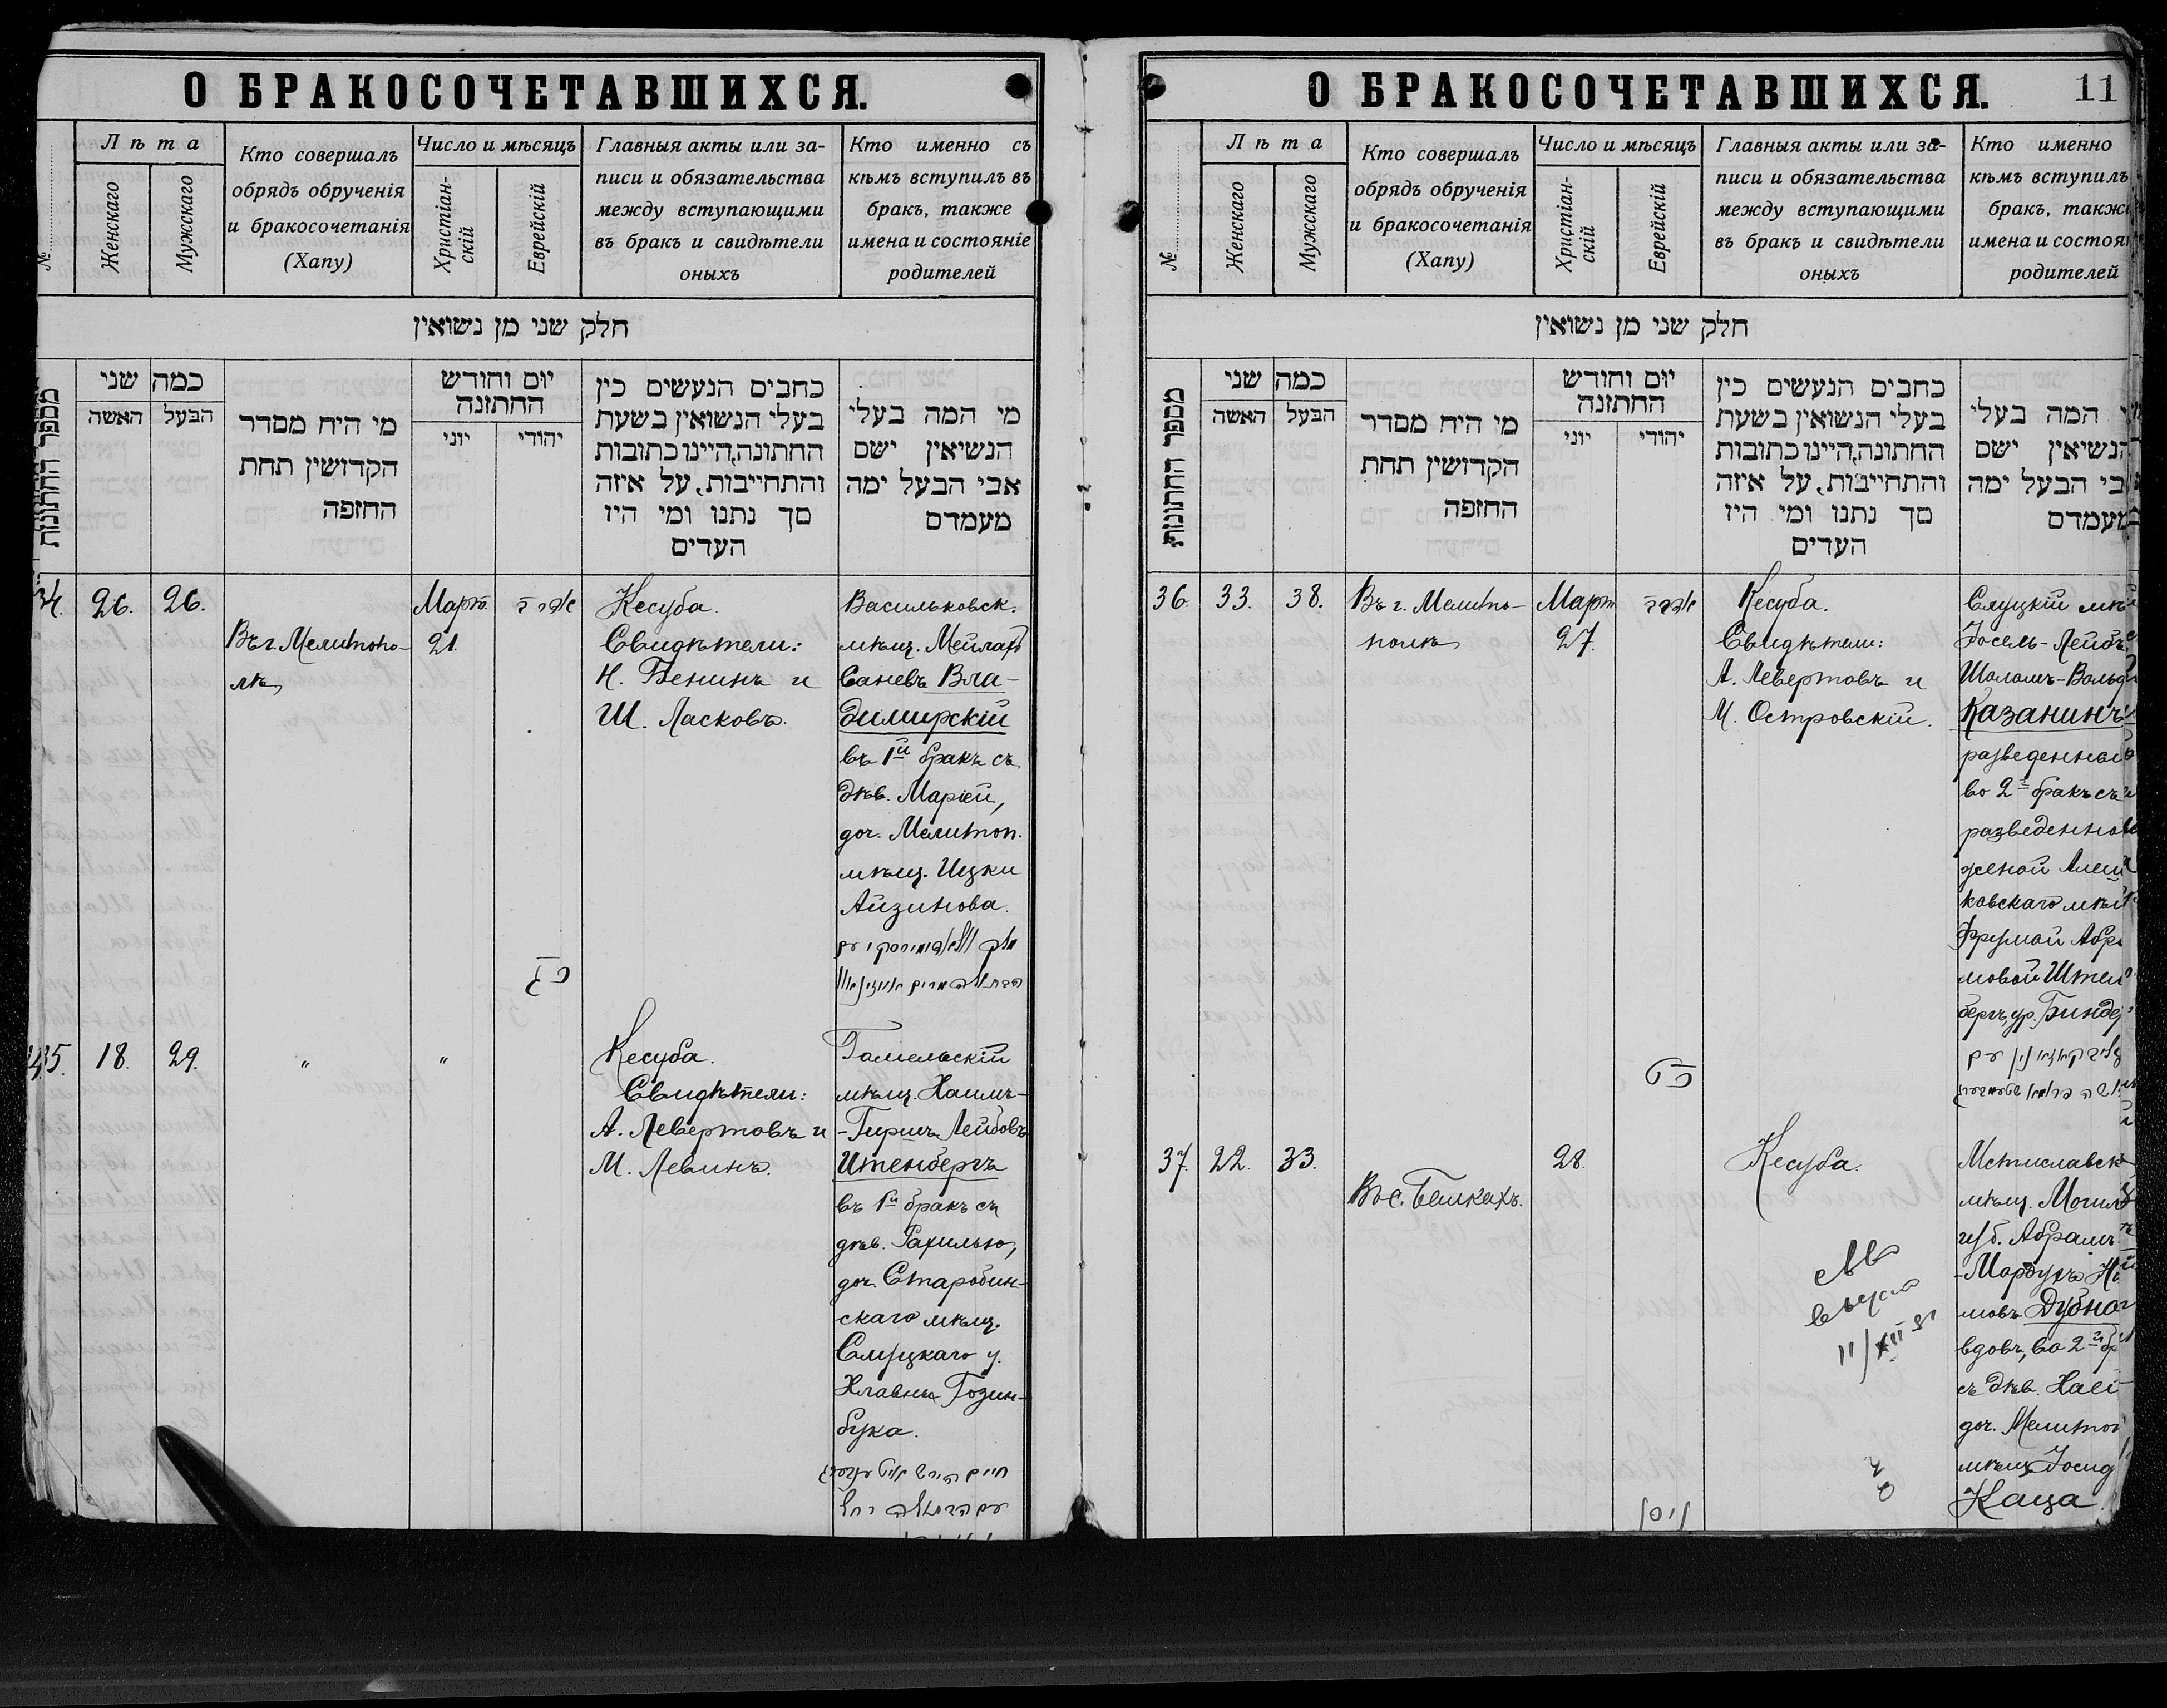 О БРАКОСОЧЕТАВШИХСЯ.
№
Лѣта
Женскаго
Мужскаго
Кто совершалъ
обрядъ обрученія
и бракосочетанія
(Хапу)
Число и мѣсяцъ
Христіан-
скій
Еврейскій
Главныя акты или за-
писи и обязательства
между вступающими
въ бракъ и свидѣтели
оныхъ
Кто именно съ
кѣмъ вступилъ въ
бракъ, также
имена и состояніе
родителей
חלק שני מן נשואין
מספר החתונות
כמה שני
האשה
הבעל
מי היח מסדר
הקדושין תחת
החזפה
יום וחודש
החתזנה
יוני
יהודי
כחבים הנעשים כין
בעלי הנשואין בשעת
החתונה,היינו כתובות
והתחייבות, על איזה
סך נתנו ומי היז
העדים
מי המה בעלי
הנשיאין ישם
אבי הבעל ימה
מעמדם
34.
26.
26.
Въ г. Мелитопо-
лѣ
Март.
21.
Кесуба.
Свидѣтели:
Н. Бенинъ и
Ш. Ласковъ.
Васильковск.
мѣщ. Мейлахъ
Саневъ Вла-
димирскій
въ 1й бракъ съ
дѣв. Маріей,
доч. Мелитоп.
мѣщ. Ицки
Айзинова.
35.
18.
29.
"
"
Кесуба.
Свидѣтели:
А. Левертовъ и
М. Левинъ.
Гомельскій
мѣщ. Хаимъ-
-Гиршъ Лейбовъ
Итенбергъ
въ 1й бракъ съ
дѣв. Рахилью,
доч. Старобин-
скаго мѣщ.
Слуцкаго у.
Хлавны Розин-
бука.
О БРАКОСОЧЕТАВШИХСЯ.
11
№
Лѣта
Женскаго
Мужскаго
Кто совершалъ
обрядъ обрученія
и бракосочетанія
(Хапу)
Число и мѣсяцъ
Христіан-
скій
Еврейскій
Главныя акты или за-
писи и обязательства
между вступающими
въ бракъ и свидѣтели
оныхъ
Кто именно
кѣмъ вступилъ
бракъ, также
имена и состоя
родителей
חלק שני מן נשואין
מספר החתונות
כמה שני
האשה
הבעל
מי היח מסדר
הקדושין תחת
החזפה
יום וחודש
החתזנה
יוני
יהודי
כחבים הנעשים כין
בעלי הנשואין בשעת
החתונה,היינו כתובות
והתחייבות, על איזה
סך נתנו ומי היז
העדים
י המה בעלי
הנשיאין ישם
בי הבעל ימה
מעמדם
36.
33.
38.
Въ г. Мелито-
полѣ
Март
27.
Кесуба.
Свидѣтели:
А. Левертовъ и
М. Островскій.
Слуцкій мѣ
Іосель-Лейбъ
Шоломъ-Вольф
Казанинъ
разведенный
во 2й бракъ съ
разведенной
женой Алеш
ковскаго мѣщ
Фрумой Абра
мовой Штейн
бергъ, ур. Бинде
37.
22.
33.
Въ с. Белкахъ.
28.
Кесуба.
11/XII
Мстиславск
мѣщ. Могил
губ. Абрамъ-
-Мордухъ
мовъ Дубно
вдовъ, во 2й бр
съ дѣв. Хаей
доч. Мелитоп
мѣщ. Іосид
Каца
ניסן